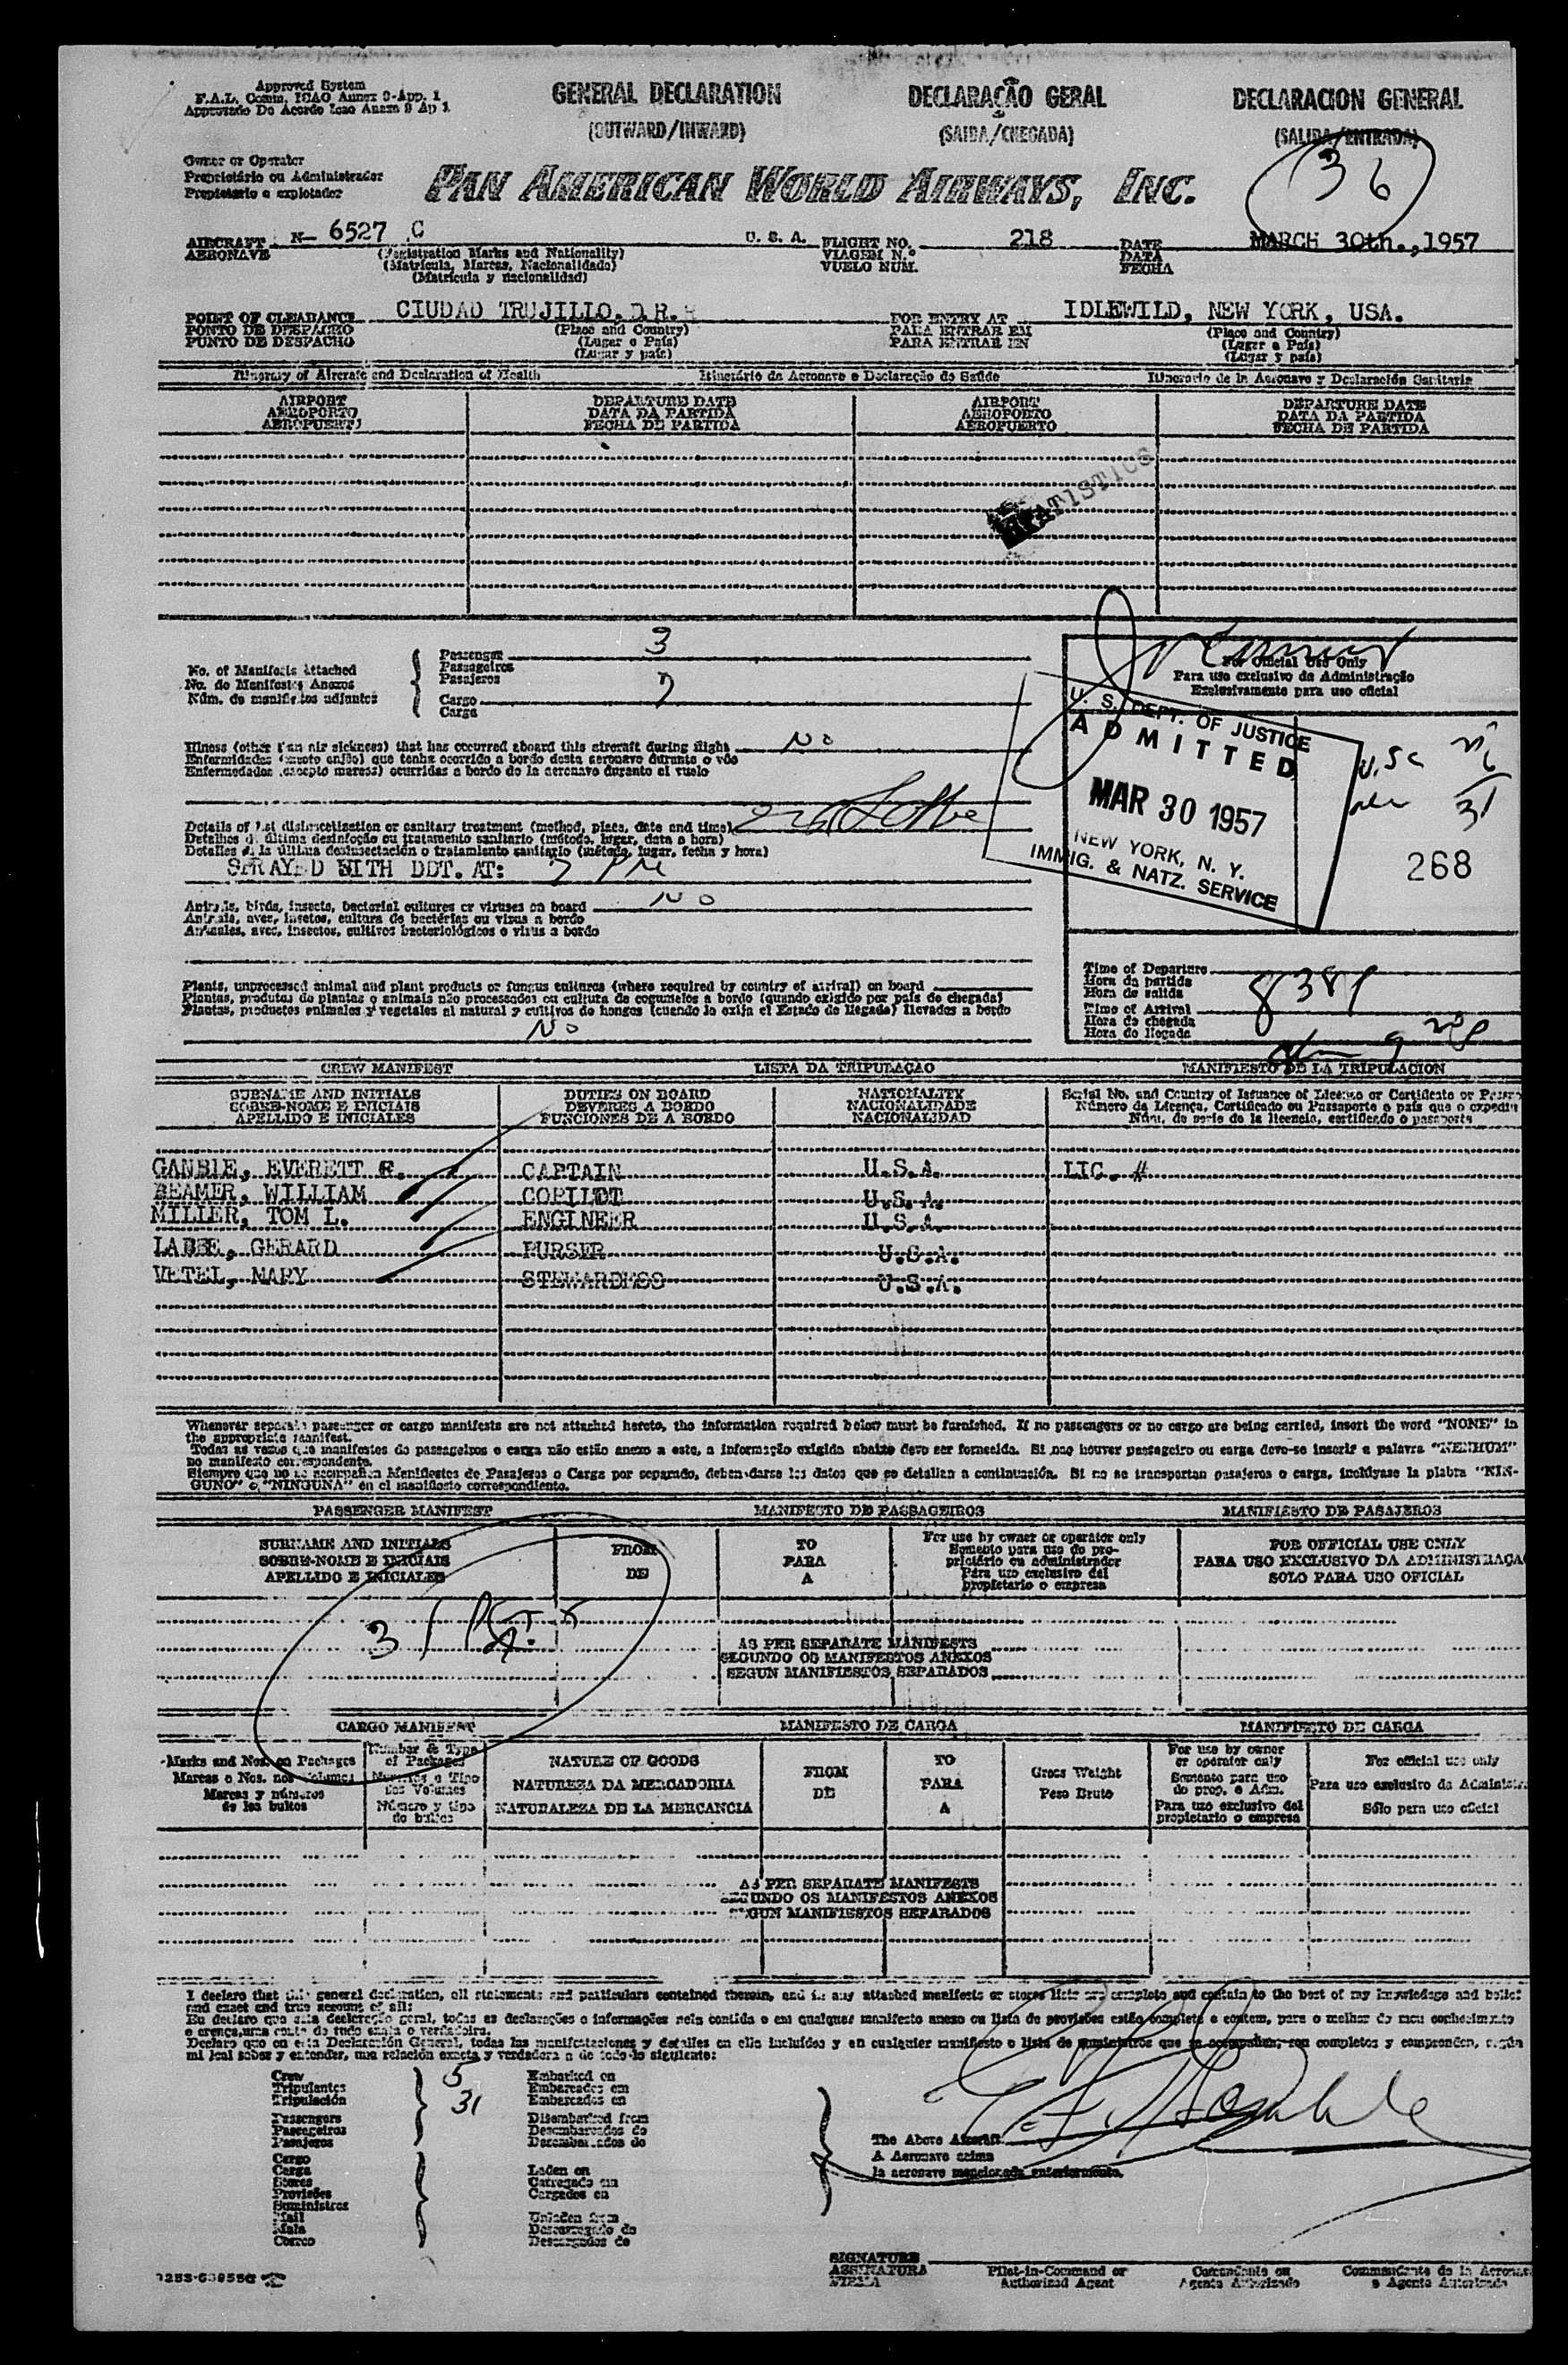 Approved System
F.A.L. Comm. ICAO Annex 9-App. 1
Approvado De Acordo Icao Anexo 9 Ap 1
GENERAL DECLARATION
DECLARAÇÃO GERAL
DECLARACION GENERAL
(OUTWARD/INWARD)
(SAIDA/CHEGADA)
(SALIDA/ENTRADA)
36
Owner or Operator
Proprietário ou Administrador
Propietario o explotador
PAN AMERICAN WORLD AIRWAYS, INC.
AIRCRAFT N- 6527 C U. S. A. FLIGHT NO. 218 DATE MARCH 30th., 1957
AERONAVE (Registration Marks and Nationality) VIAGEM N.º DATA
(Matricula, Marcas, Nacionalidade) VUELO NUM. FECHA
(Matricula y nacionalidad)
POINT OF CLEARANCE CIUDAD TRUJILLO, D.R. FOR ENTRY AT IDLEWILD, NEW YORK, USA.
PONTO DE DESPACHO (Place and Country) PARA ENTRAR EM (Place and Country)
PUNTO DE DESPACHO (Lugar e País) PARA ENTRAR EN (Lugar e País)
(Lugar y país) (Lugar y país)
Itinerary of Aircraft and Declaration of Health Itinerário da Aeronave e Declaração de Saúde Itinerario de la Aeronave y Declaración Sanitaria
AIRPORT DEPARTURE DATE AIRPORT DEPARTURE DATE
AEROPORTO DATA DA PARTIDA AEROPORTO DATA DA PARTIDA
AEROPUERTO FECHA DE PARTIDA AEROPUERTO FECHA DE PARTIDA
STATISTICS
No. of Manifests Attached
No. de Manifestos Anexos
Núm. de manifiestos adjuntos
Passenger 3
Passageiros
Pasajeros
Cargo
Carga
For Official Use Only
Para uso exclusivo da Administração
Exclusivamente para uso oficial
U. S. DEPT. OF JUSTICE
ADMITTED
MAR 30 1957
NEW YORK, N. Y.
IMMIG. & NATZ. SERVICE
U.S.C
31
268
Illness (other than air sickness) that has occurred aboard this aircraft during flight No
Enfermidades (exceto enjôo) que tenha ocorrido a bordo desta aeronave durante o vôo
Enfermedades (excepto mareos) ocurridas a bordo de la aeronave durante el vuelo
Details of last disinsectization or sanitary treatment (method, place, date and time)
Detalhes da última desinfeção ou tratamento sanitario (método, lugar, data a hora)
Detalles de la última desinsectación o tratamiento sanitario (método, lugar, fecha y hora)
SPRAYED WITH DDT. AT: 7 PM
Animals, birds, insects, bacterial cultures or viruses on board NO
Animais, aves, insetos, cultura de bactérias ou virus a bordo
Animales, aves, insectos, cultivos bacteriológicos o virus a bordo
Plants, unprocessed animal and plant products or fungus cultures (where required by country of arrival) on board
Plantas, produtos de plantas o animais não processados ou cultura de cogumelos a bordo (quando exigido por país de chegada)
Plantas, productos animales y vegetales al natural y cultivos de hongos (cuando lo exija el Estado de llegada) llevados a bordo
No
Time of Departure
Hora da partida
Hora de salida
Time of Arrival
Hora da chegada
Hora de llegada
CREW MANIFEST LISTA DA TRIPULAÇAO MANIFIESTO DE LA TRIPULACION
SURNAME AND INITIALS DUTIES ON BOARD NATIONALITY Serial No. and Country of Issuance of License or Certificate or
SOBRE-NOME E INICIAIS DEVERES A BORDO NACIONALIDADE Número da Licença, Certificado ou Passaporte o país que o
APELLIDO E INICIALES FUNCIONES DE A BORDO NACIONALIDAD Núm. de serie de la licencia, certificado o pasaporte
GAMBLE, EVERETT F. CAPTAIN U.S.A. LIC. #
BEAMER, WILLIAM COPILOT U.S.A.
MILLER, TOM L. ENGINEER U.S.A.
LABBE, GERARD PURSER U.S.A.
VETEL, MARY STEWARDESS U.S.A.
Whenever separate passenger or cargo manifests are not attached hereto, the information required below must be furnished. If no passengers or no cargo are being carried, insert the word "NONE" in
the appropriate manifest.
Todas as vezes que manifestos de passageiros e carga não estão anexo a este, a informação exigida abaixo deve ser fornecida. Si nao houver passageiro ou carga deve-se inserir a palavra "NENHUM"
no manifesto correspondente.
Siempre que no se acompañen Manifiestos de Pasajeros o Carga por separado, deben darse los datos que se detallan a continuación. Si no se transportan pasajeros o carga, inclúyase la plabra "NIN-
GUNO" o "NINGUNA" en el manifiesto correspondiente.
PASSENGER MANIFEST MANIFESTO DE PASSAGEIROS MANIFIESTO DE PASAJEROS
SURNAME AND INITIALS
SOBRE-NOME E INICIAIS
APELLIDO E INICIALES
FROM
DE
TO
PARA
A
For use by owner or operator only
Somente para uso do pro-
prietário ou administrador
Para uso exclusivo del
propietario o empresa
FOR OFFICIAL USE ONLY
PARA USO EXCLUSIVO DA ADMINISTRAÇAO
SOLO PARA USO OFICIAL
31
AS PER SEPARATE MANIFESTS
SEGUNDO OS MANIFESTOS ANEXOS
SEGUN MANIFIESTOS SEPARADOS
CARGO MANIFEST MANIFESTO DE CARGA MANIFIESTO DE CARGA
Marks and Nos. on Packages
Marcas e Nos. nos Volumes
Marcas y números
de los bultos
Number & Type
of Packages
Numeros e Tipo
Dos Volumes
Número y tipo
de bultos
NATURE OF GOODS
NATUREZA DA MERCADORIA
NATURALEZA DE LA MERCANCIA
FROM
DE
TO
PARA
A
Gross Weight
Peso Bruto
For use by owner
or operator only
Somente para uso
do prop. e Adm.
Para uso exclusivo del
propietario o empresa
For official use only
Para uso exclusivo da
Sólo para uso oficial
AS PER SEPARATE MANIFESTS
SEGUNDO OS MANIFESTOS ANEXOS
SEGUN MANIFIESTOS SEPARADOS
I declare that this general declaration, all statements and particulars contained therein, and in any attached manifests or stores lists are complete and contain to the best of my knowledge and belief
and exact and true account of all:
Eu declaro que esta declaração geral, todas as declarações o informações nela contida o em qualquer manifesto anexo ou lista de provisões estão completa e contem, para o melhor do meu conhecimento
Declaro que en esta Declaración General, todas las manifestaciones y detalles en ella incluidos y en cualquier manifiesto o lista de suministros que se acompañan, son completos y comprenden, según
mi leal saber y entender, una relación exacta y verdadera a de todo lo siguiente:
Crew 5 Embarked on
Tripulantes Embarcados em
Tripulación 31 Embarcados en
Passengers Disembarked from
Passageiros Desembarcados de
Pasajeros Desembarcados de
Cargo
Carga Laden on
Stores Carregado em
Provisões Cargados en
Suministros
Mail Unladen from
Mala Descarregado de
Correo Descargados de
The Above Aircraft
A Aeronave acima
la aeronave mencionada anteriormente.
E. F. Gamble
SIGNATURE
ASSINATURA
FIRMA
Pilot-in-Command or
Authorized Agent
Comandante ou
Agente Autorizado
Commandante de la
o Agente Autorizado